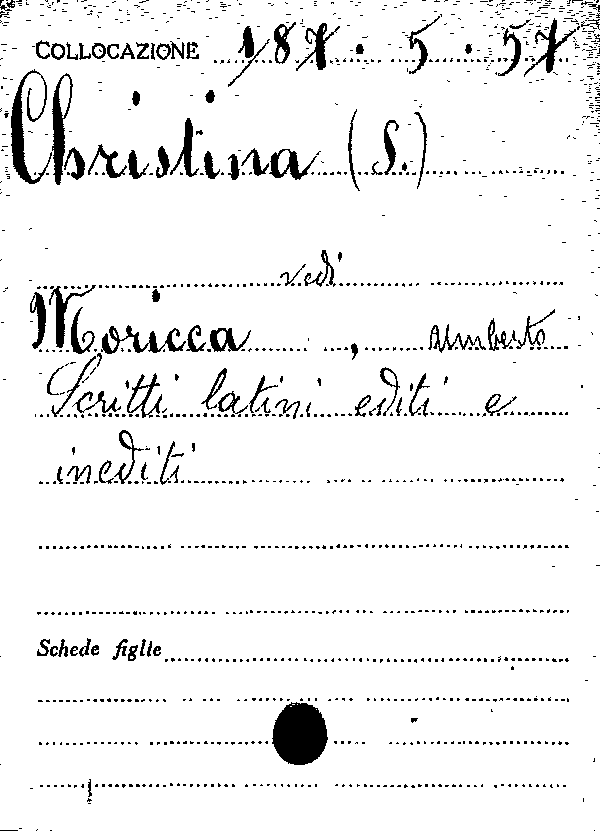 COLLOCAZIONE 187.5.57
Christina (S.)
vedi
Moricca, Umberto
Scritti latini editi e
inediti
Schede figlie